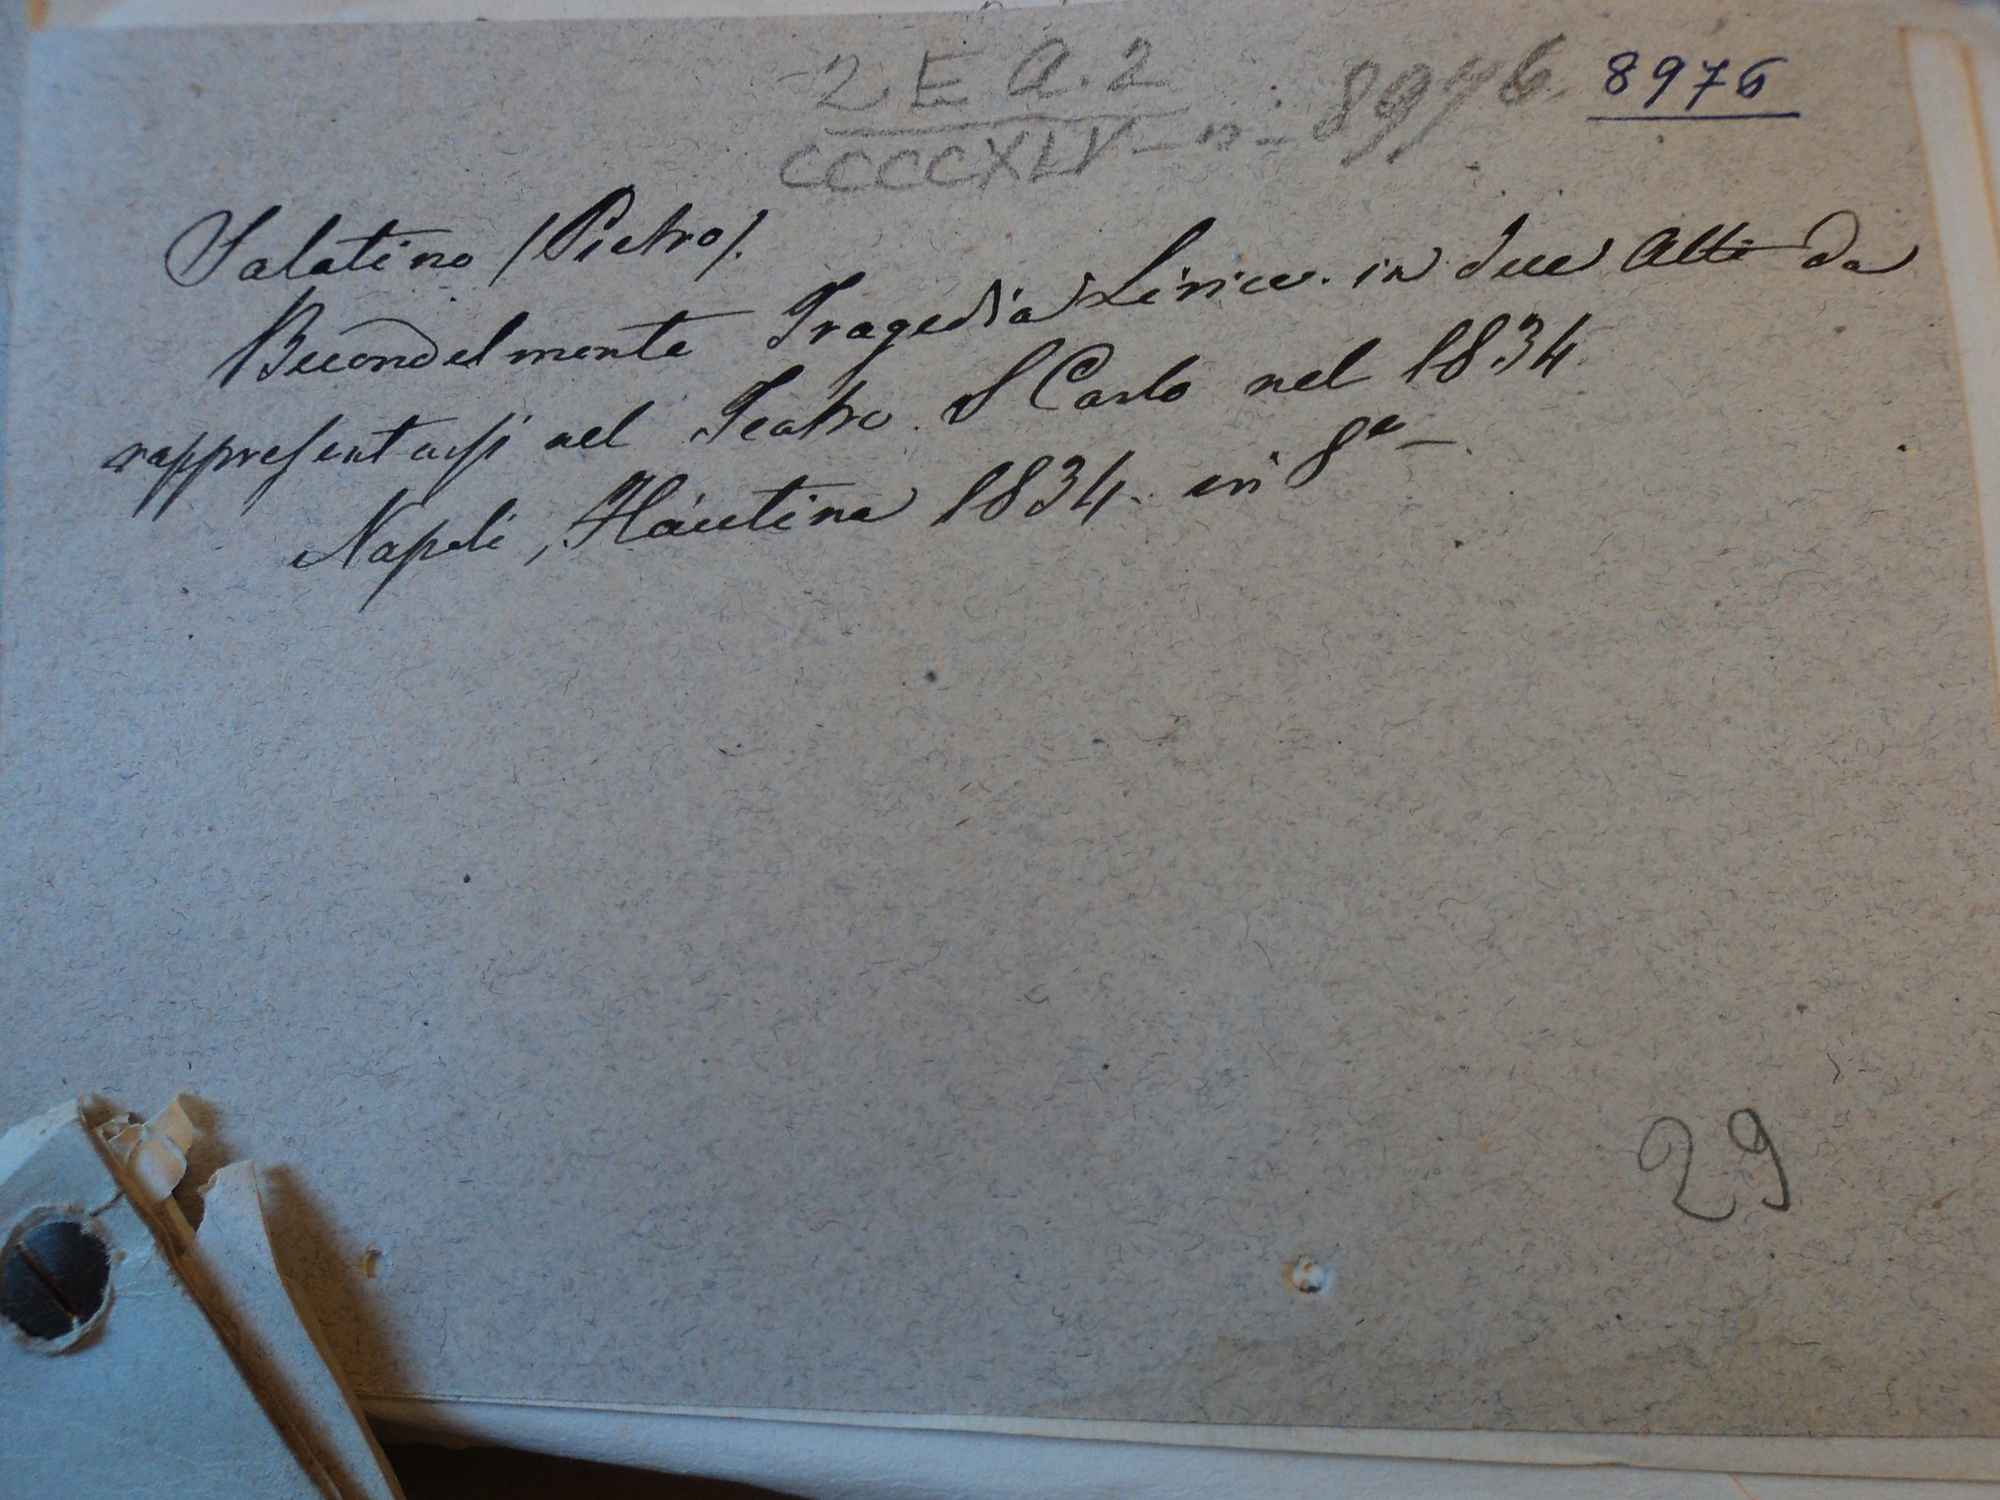 2 E A. 2
CCCCXLIV - n - 8976. 8976
Salatino (Pietro).
Buondelmonte Tragedia Lirica in due Atti da
rappresentarsi nel Teatro S Carlo nel 1834
Napoli, Flautina 1834. in 8°
29